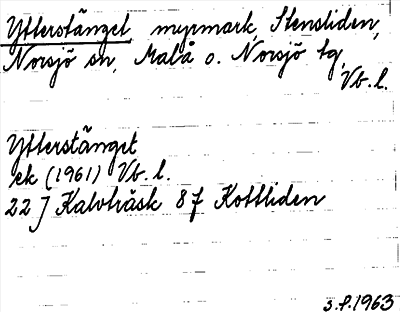 Ytterstänget, myrmark, Stensliden,
Norsjö sn, Malå o. Norsjö tg,
Vb. l.
Ytterstänget
ek (1961) Vb. l.
22 J Kalvträsk 8 f Kottliden
s. f. 1963